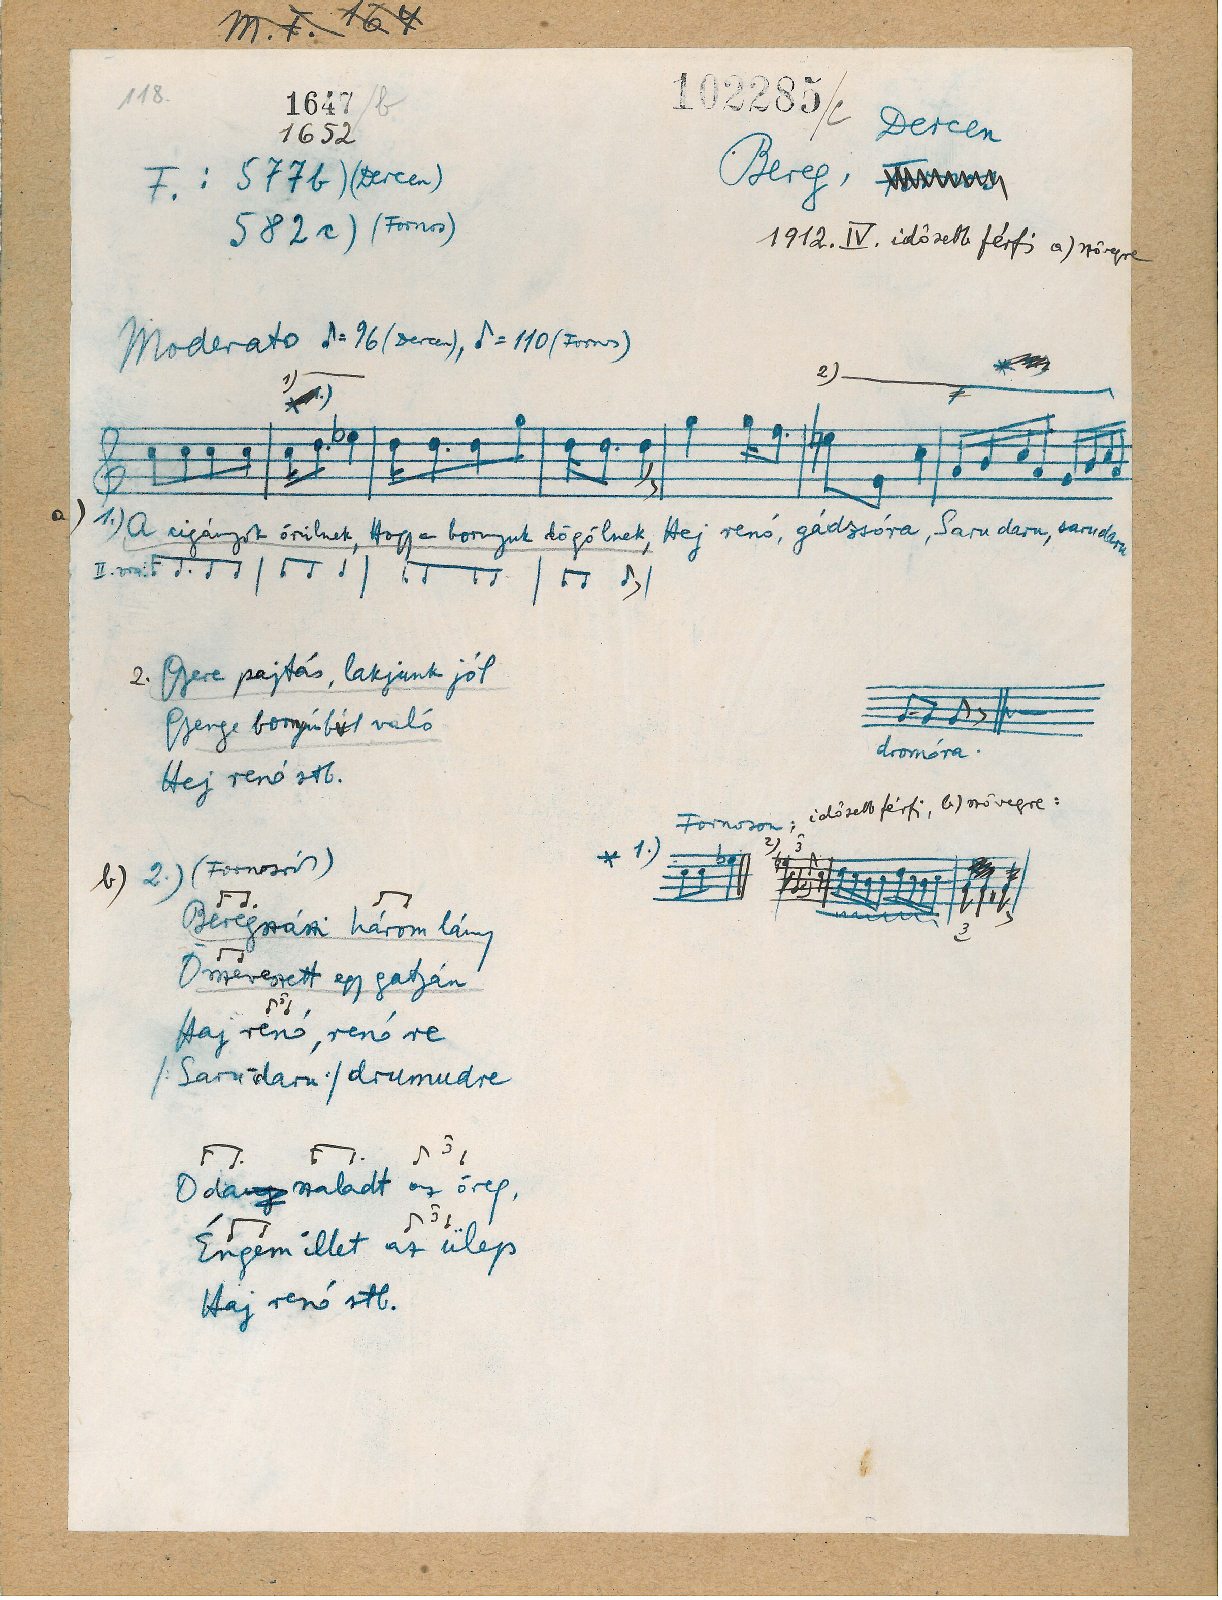 M. F. 164
118.
1647/b
1652
102285/c
Dercen
Bereg,
F. : 577b) (Dercen)
582c) (Fornos)
1912. IV. idősebb férfi a) szövegre
Moderato ♪=96 (Dercen), ♪=110 (Fornos)
1) 1.) 2)
a) 1.) A cigányok örülnek, Hogy a bornyuk dögölnek, Hej renó, gádzsóra, Saru daru, sarudaru
II. vsz:
dromóra.
2. Gyere pajtás, lakjunk jól
Gyenge bornyúbúl való
Hej renó stb.
Fornoson: idősebb férfi, b) szövegre:
* 1.) 2) 3
3
b) 2.) (Fornosról)
Beregszászi három lány
Öszveveszett egy gatyán
3
Haj renó, renó re
/: Saru daru :/ drumudre
3
Oda szaladt az öreg,
3
Éngem illet az ülep
Haj renó stb.